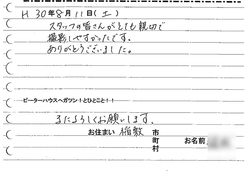 H 30年8月11日(土)
スタッフの皆さんがとても親切で
撮影しやすかったです。
ありがとうございました。
ピーターハウスへガツン!とひとこと!!
またよろしくお願いします。
お住まい 稲敷 市 町 村 お名前